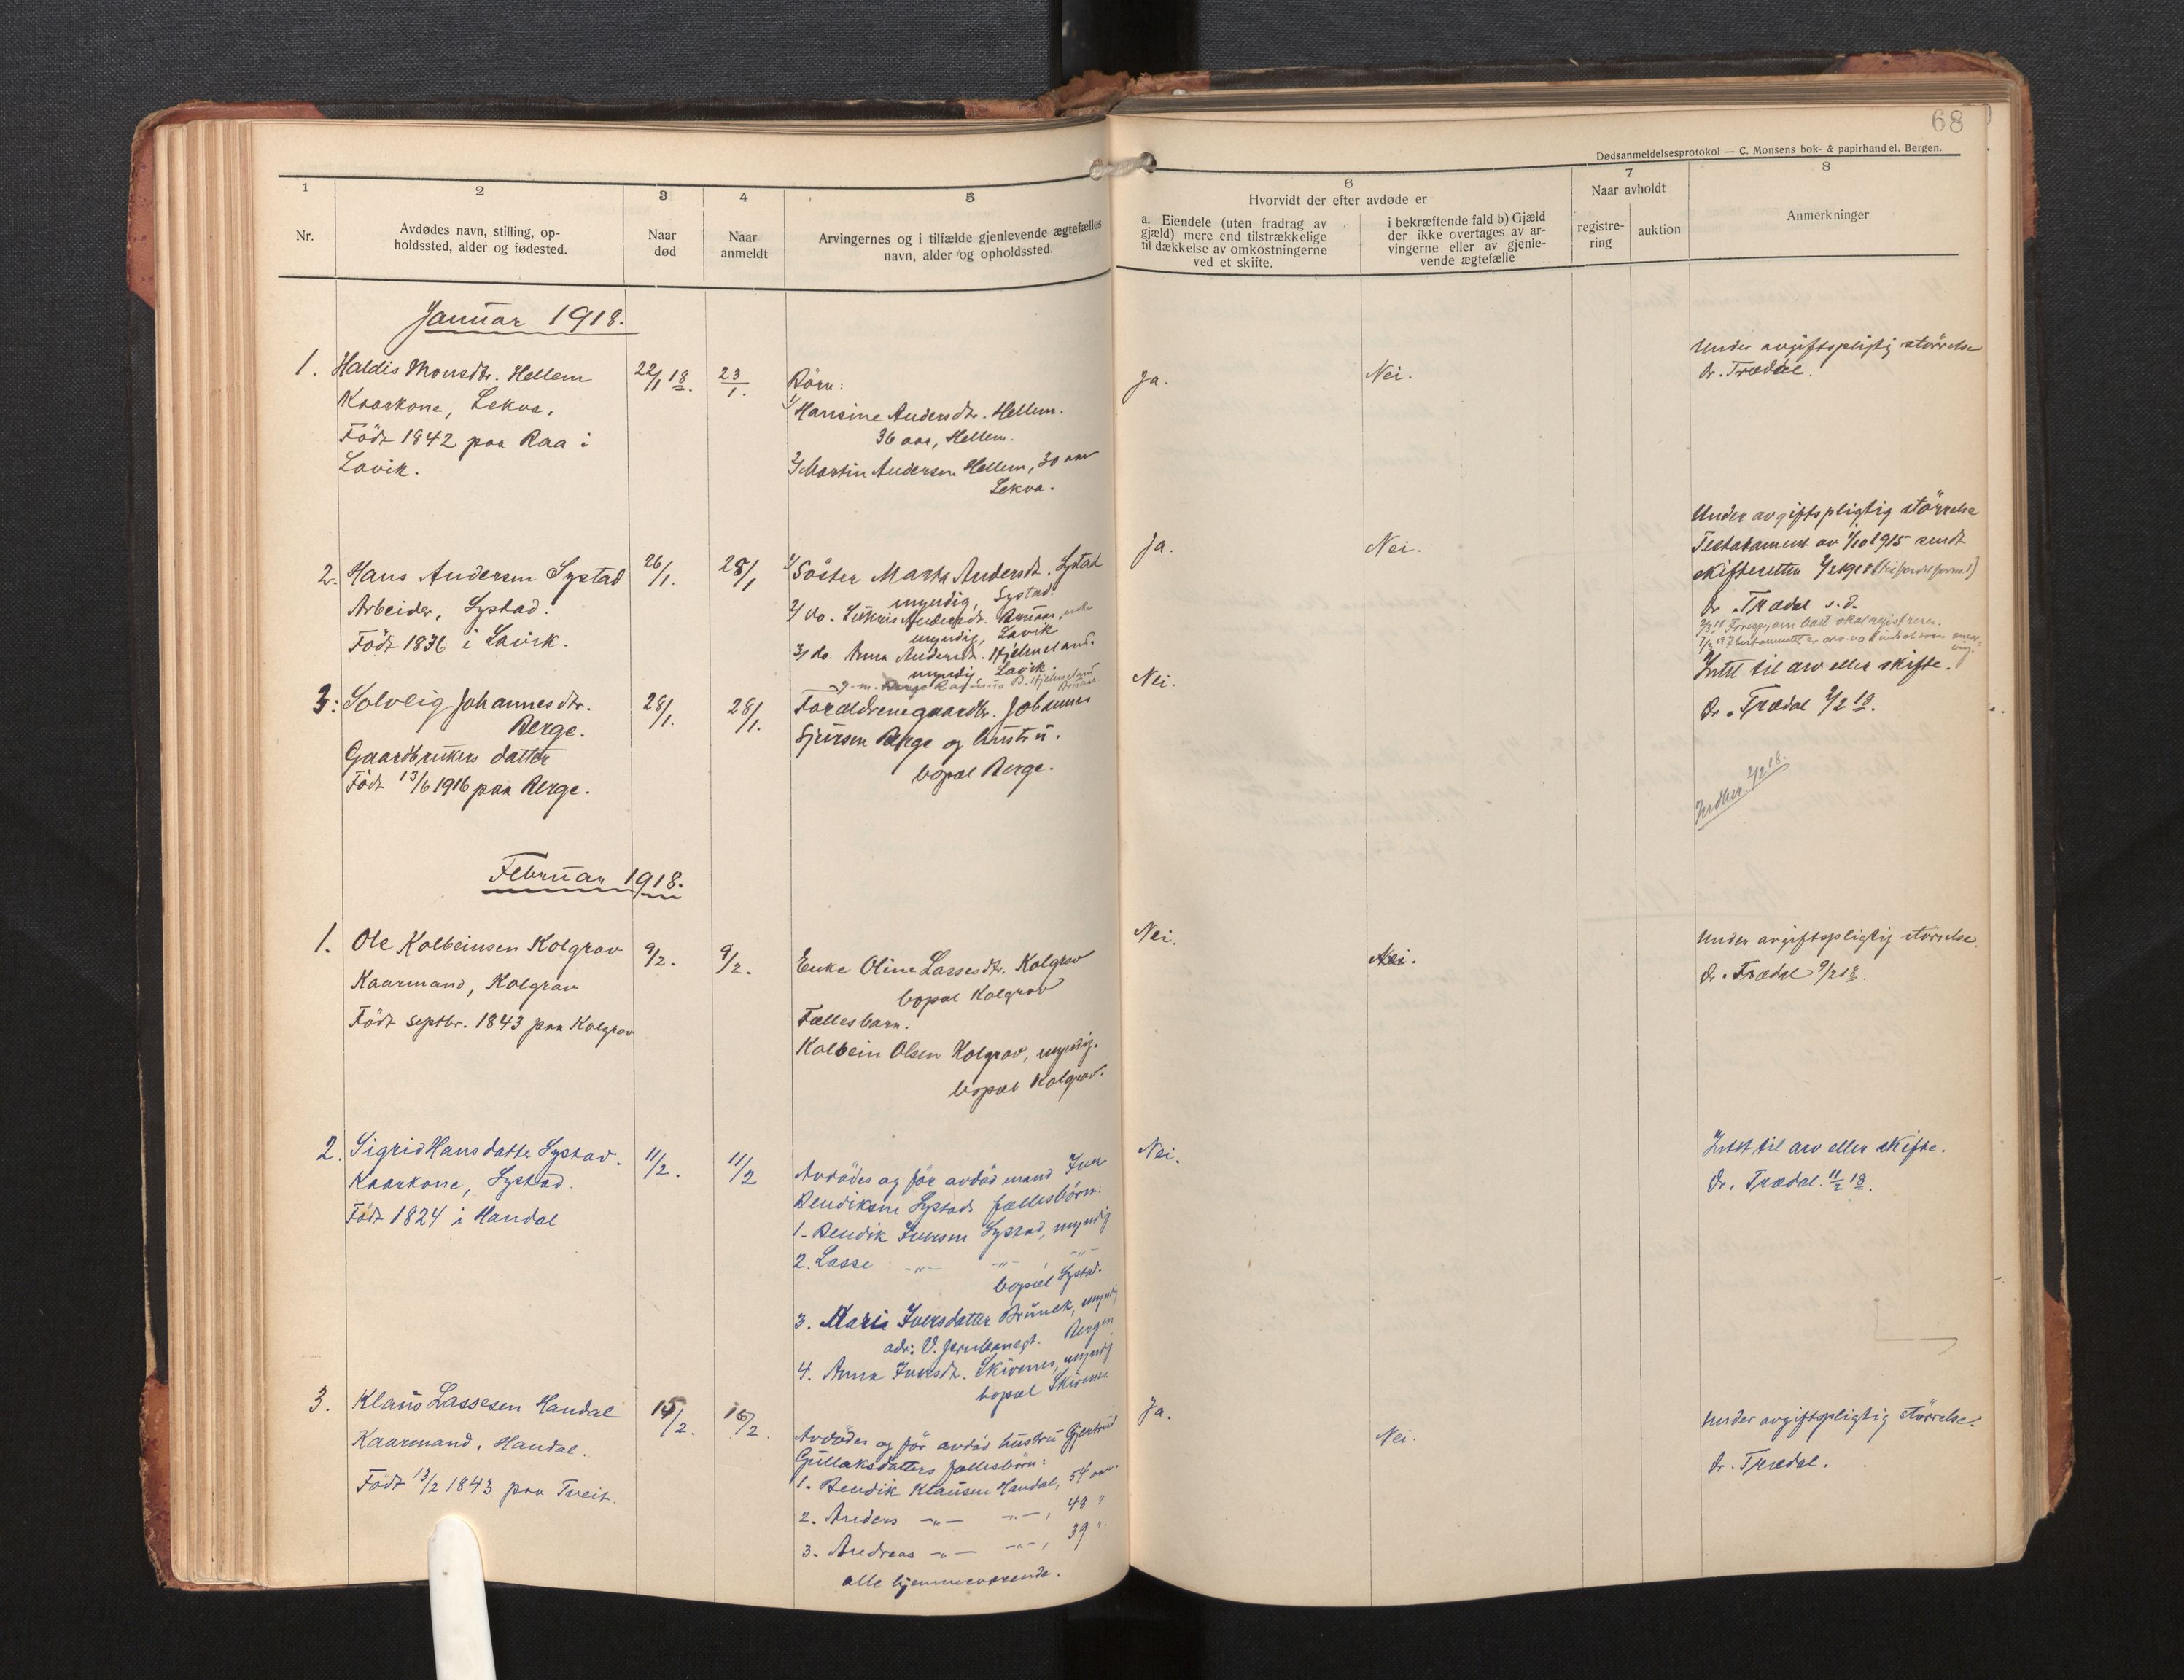 68
Dødsanmeldelsesprotokol — C. Monsens bok- & papirhandel, Bergen.
1
2
3
4
5
6
7
8
Nr.
Avdødes navn, stilling, op-
holdssted, alder og fødested.
Naar
død
Naar
anmeldt
Arvingernes og i tilfælde gjenlevende ægtefælles
navn, alder og opholdssted.
Hvorvidt der efter avdøde er
a. Eiendele (uten fradrag av
gjæld) mere end tilstrækkelige
til dækkelse av omkostningerne
ved et skifte.
i bekræftende fald b) Gjæld
der ikke overtages av ar-
vingerne eller av gjenle-
vende ægtefælle
Naar avholdt
registre-
ring
auktion
Anmerkninger
Januar 1918.
1. Haldis Monsdtr. Hellem
Kaarkone, Lekva.
Født 1842 paa Raa i
Lavik.
22/1 18.
23/1.
Børn:
1/ Hansine Andersdtr. Hellem.
36 aar, Hellem.
2/ Martin Andersen Hellem, 30 aar
Lekva.
Ja.
Nei.
Under avgiftspligtig størrelse
Dr. Trædal.
2. Hans Andersen Systad
Arbeider, Systad.
Født 1836 i Lavik.
26/1.
28/1
1/ Søster Marta Andersdt. Systad
myndig, Systad.
2/ do.
myndig, Lavik
3/ do. Anna Andersdt. Hjelmeland.
myndig Lavik.
Ja.
Nei.
Under avgiftspligtig størrelse
Testatament av 1/10 1915 sendt
skifteretten 2/2 1918
Dr. Trædal s.d.
3. Solveig Johannesdtr.
Berge.
Gaardbrukers datter
Født 13/6 1916 paa Berge.
28/1.
28/1.
Forældrene gaardbr. Johannes
Sjursen Berge og hustru.
bopæl Berge.
Nei.
Intet til arv eller skifte.
Dr. Trædal 2/2 18.
2/2 18.
Februar 1918.
1. Ole Kolbeinsen Kolgrav
Kaarmand, Kolgrav
Født septbr. 1843 paa Kolgrav
9/2.
9/2.
Enke Oline Lassesdtr. Kolgrav
bopæl Kolgrav
Fællesbarn.
Kolbein Olsen Kolgrav, myndig.
bopæl Kolgrav.
Nei.
Nei.
Under avgiftspligtig størrelse.
Dr. Trædal 9/2 18.
2. Sigrid Hansdatter Systad.
Kaarkone, Systad.
Født 1824 i Handal
11/2.
11/2
Avdødes og før avdød mand Iver
Bendiksen Systads fællesbørn:
1. Bendik Iversen Systad, myndig
2. Lasse -"- -"- , -"-
bopæl Systad.
3. Maria Iversdatter Brunck, myndig
adr: V. Jernbanegt. Bergen
4. Anna Iversdt. Skivenes, myndig
bopæl Skivenes
Nei.
Intet til arv eller skifte.
Dr. Trædal. 11/2 18.
3. Klaus Lassesen Handal
Kaarmand, Handal.
Født 13/2 1843 paa Tveit.
15/2.
16/2.
Avdødes og før avdød hustru Gjertrud
Gullaksdatters fællesbørn:
1. Bendik Klausen Handal, 54 aar.
2. Anders -"- -"-, 48 "
3. Andreas -"- -"-, 39 "
alle hjemmeværende.
Ja.
Nei.
Under avgiftspligtig størrelse.
Dr. Trædal.